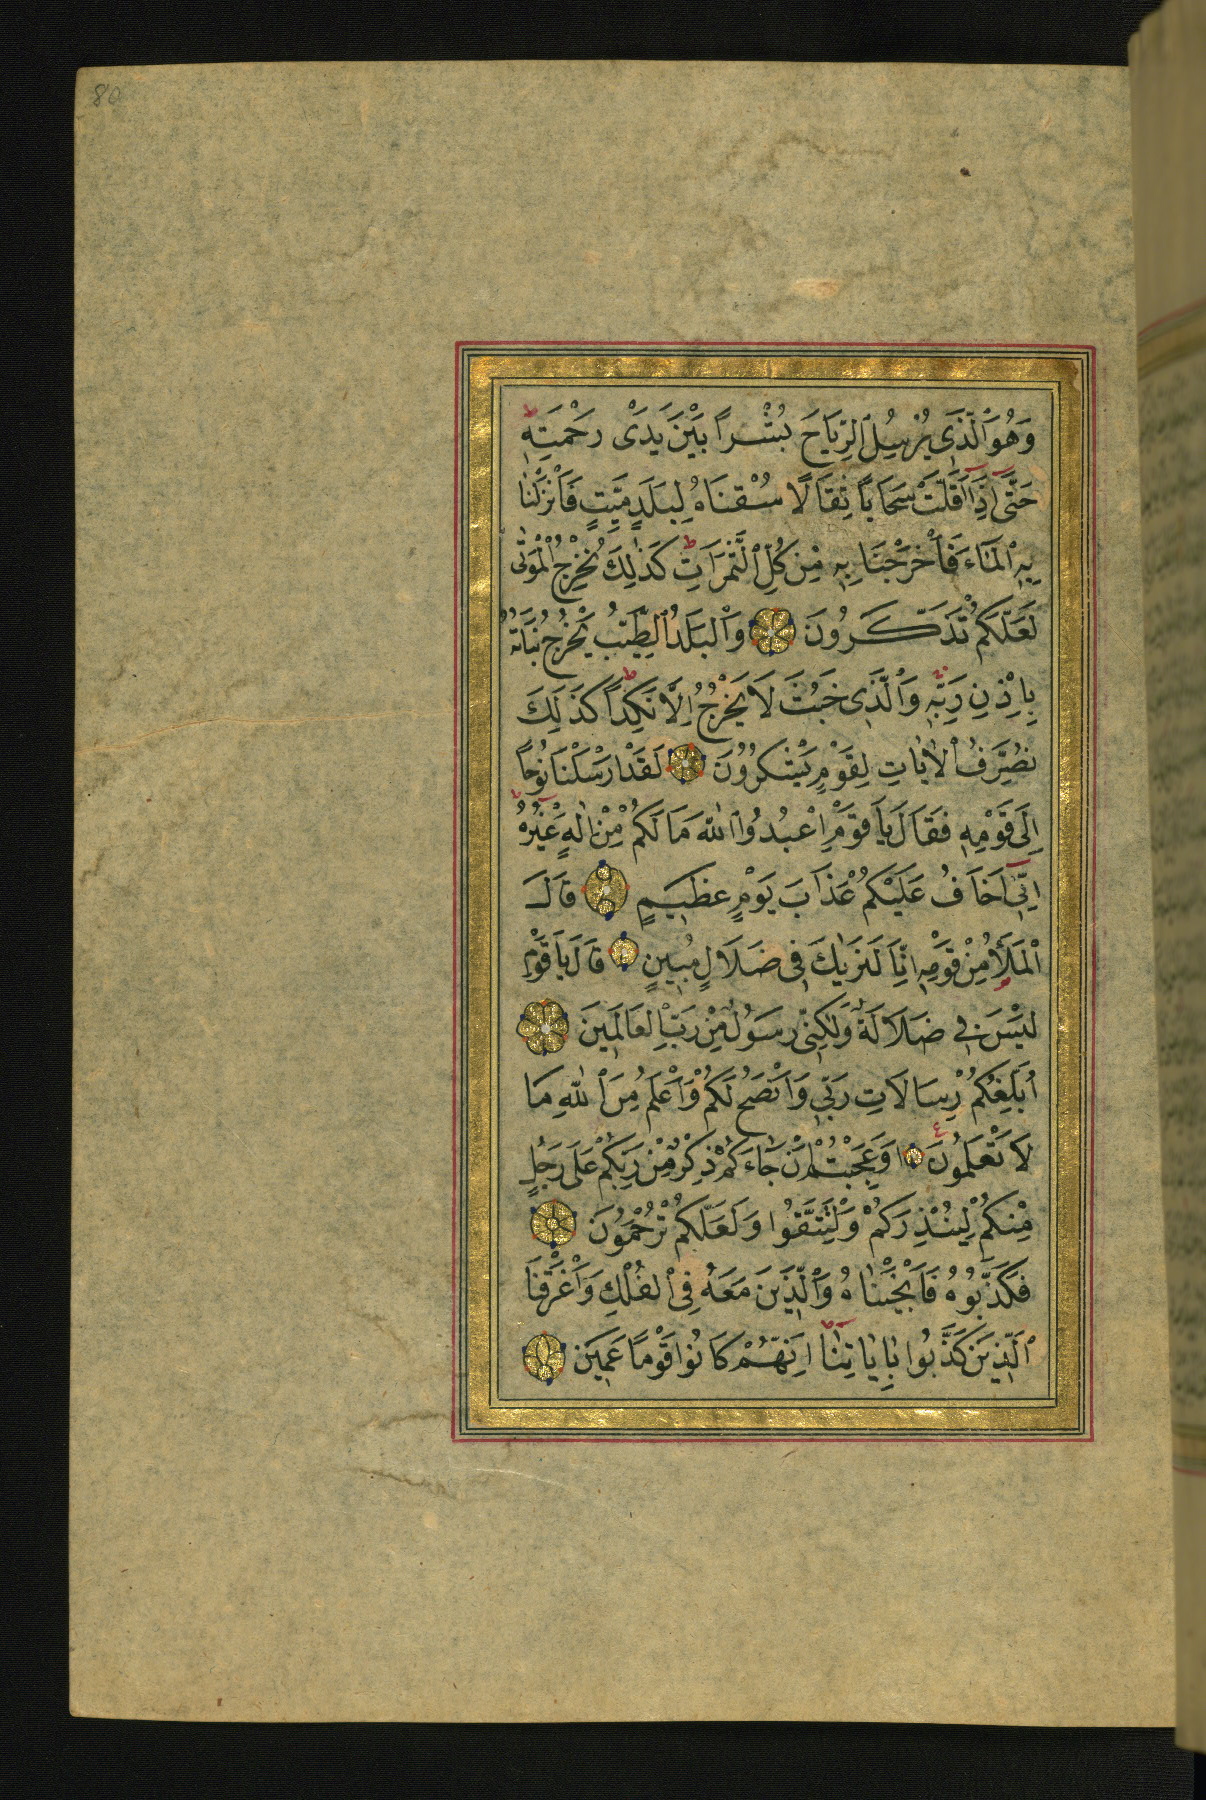 80
وَهُوَ الَّذِي يُرْسِلُ الرِّيَاحَ بُشْرًا بَيْنَ يَدَيْ رَحْمَتِهِ
حَتَّى إِذَا أَقَلَّتْ سَحَابًا ثِقَالًا سُقْنَاهُ لِبَلَدٍ مَيِّتٍ فَأَنْزَلْنَا
بِهِ الْمَاءَ فَأَخْرَجْنَا بِهِ مِنْ كُلِّ الثَّمَرَاتِ كَذَلِكَ نُخْرِجُ الْمَوْتَى
لَعَلَّكُمْ تَذَكَّرُونَ وَالْبَلَدُ الطَّيِّبُ يَخْرُجُ نَبَاتُهُ
بِإِذْنِ رَبِّهِ وَالَّذِي خَبُثَ لَا يَخْرُجُ إِلَّا نَكِدًا كَذَلِكَ
نُصَرِّفُ الْآيَاتِ لِقَوْمٍ يَشْكُرُونَ لَقَدْ أَرْسَلْنَا نُوحًا
إِلَى قَوْمِهِ فَقَالَ يَا قَوْمِ اعْبُدُوا اللهَ مَا لَكُمْ مِنْ إِلَهٍ غَيْرُهُ
إِنِّي أَخَافُ عَلَيْكُمْ عَذَابَ يَوْمٍ عَظِيمٍ قَالَ
الْمَلَأُ مِنْ قَوْمِهِ إِنَّا لَنَرَيكَ فِي ضَلَالٍ مُبِينٍ قَالَ يَا قَوْمِ
لَيْسَ بِي ضَلَالَةٌ وَلَكِنِّي رَسُولٌ مِنْ رَبِّ الْعَالَمِينَ
أُبَلِّغُكُمْ رِسَالَاتِ رَبِّي وَأَنْصَحُ لَكُمْ وَأَعْلَمُ مِنَ اللهِ مَا
لَا تَعْلَمُونَ أَوَعَجِبْتُمْ أَنْ جَاءَكُمْ ذِكْرٌ مِنْ رَبِّكُمْ عَلَى رَجُلٍ
مِنْكُمْ لِيُنْذِرَكُمْ وَلِتَتَّقُوا وَلَعَلَّكُمْ تُرْحَمُونَ
فَكَذَّبُوهُ فَأَنْجَيْنَاهُ وَالَّذِينَ مَعَهُ فِي الْفُلْكِ وَأَغْرَقْنَا
الَّذِينَ كَذَّبُوا بِآيَاتِنَا إِنَّهُمْ كَانُوا قَوْمًا عَمِينَ